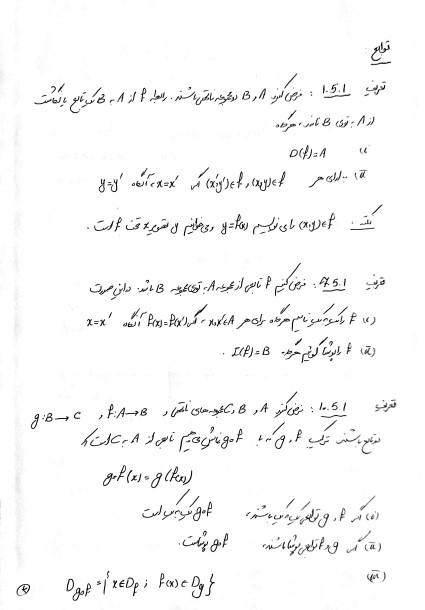 توابع
تعریف 1.5.1 : فرض کنید A و B دو مجموعه ناتهی باشند. رابطه f از A به B یک تابع یا نگاشت
از A به توی B نامند، هرگاه
i) D(f)=A
ii) به ازای هر (x,y)∈f و (x',y')∈f اگر x=x' ، آنگاه y=y'
نکته : (x,y)∈f را می نویسیم y=f(x) و می خوانیم y تصویر x تحت f است.
تعریف .5.1 : فرض کنیم f تابعی از مجموعه A به توی مجموعه B باشد. در این صورت
i) f را یک به یک نامیم هرگاه برای هر x,x'∈A ، اگر f(x)=f(x') آنگاه x=x'
ii) f را پوشا گوییم هرگاه I(f)=B .
تعریف 10.5.1 : فرض کنید A و B و C مجموعه های ناتهی و f:A→B و g:B→C
دو تابع باشند. ترکیب f و g که با gof نمایش می دهیم تابعی از A به C است که
gof(x)=g(f(x))
(i) اگر f و g توابعی یک به یک باشند، gof یک به یک است
(ii) اگر g و f توابعی پوشا باشند، gof پوشاست.
(iii) D_{gof}={x∈D_f ; f(x)∈D_g}